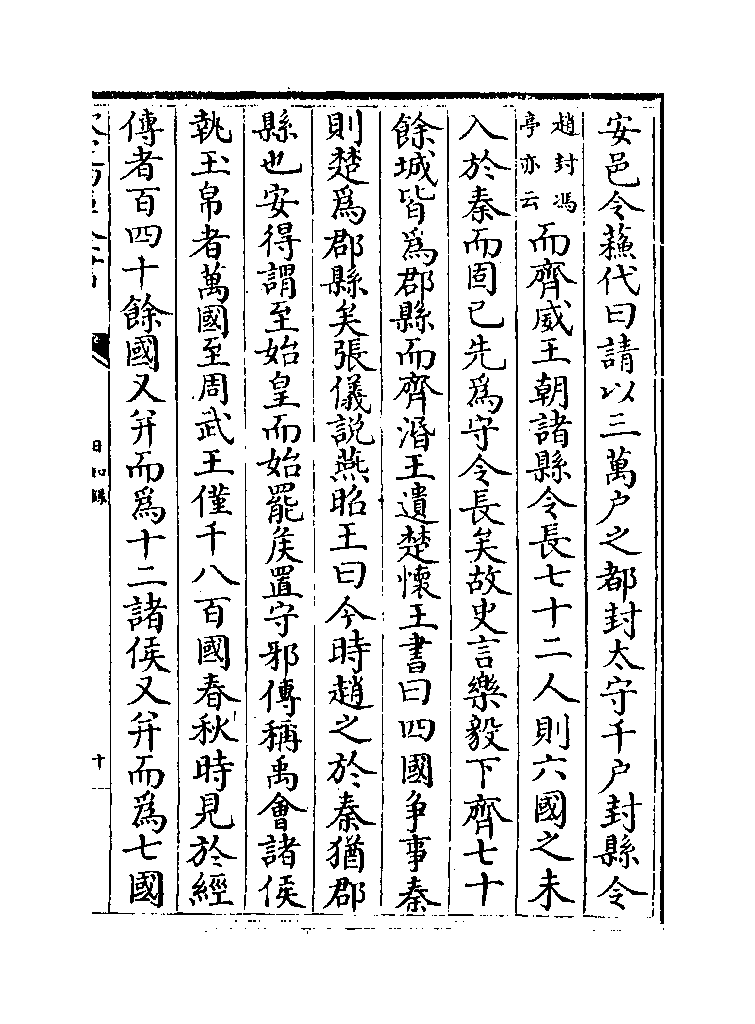 安邑令蘇代曰請以三萬户之都封太守千户封縣令
趙封馮
亭亦云
而齊威王朝諸縣令長七十二人則六國之未
入於秦而固已先為守令長矣故史言樂毅下齊七十
餘城皆為郡縣而齊湣王遺楚懷王書曰四國争事秦
則楚為郡縣矣張儀説燕昭王曰今時趙之於秦猶郡
縣也安得謂至始皇而始罷侯置守邪傳稱禹會諸侯
執玉帛者萬國至周武王僅千八百國春秋時見於經
傳者百四十餘國又并而為十二諸侯又并而為七國
日知録
十